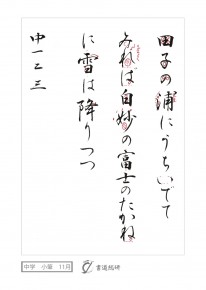 田子の浦にうちいでて
みれば白妙の富士のたかね
に雪は降りつつ
中一 三
中学 小筆 11月
書道教研